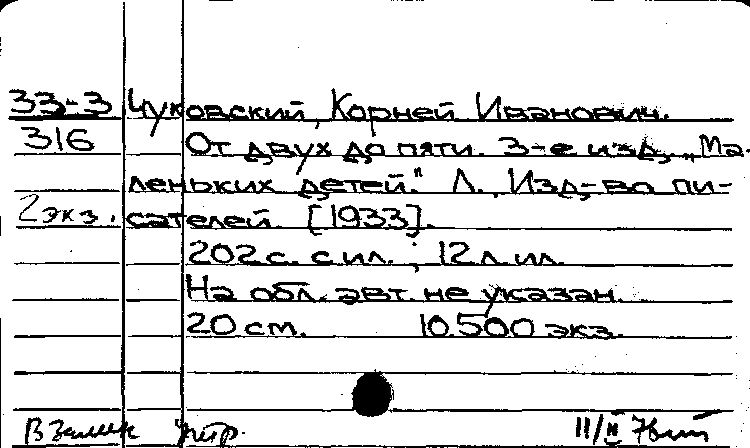 33-3 Чуковский, Корней Иванович.
316 От двух до пяти. 3-е изд. „Ма-
леньких детей." Л., Изд-во пи-
2 экз. сателей. [1933].
202 с. с ил. ; 12 л. ил.
На обл. авт. не указан.
20 см. 10.500 экз.
11/II